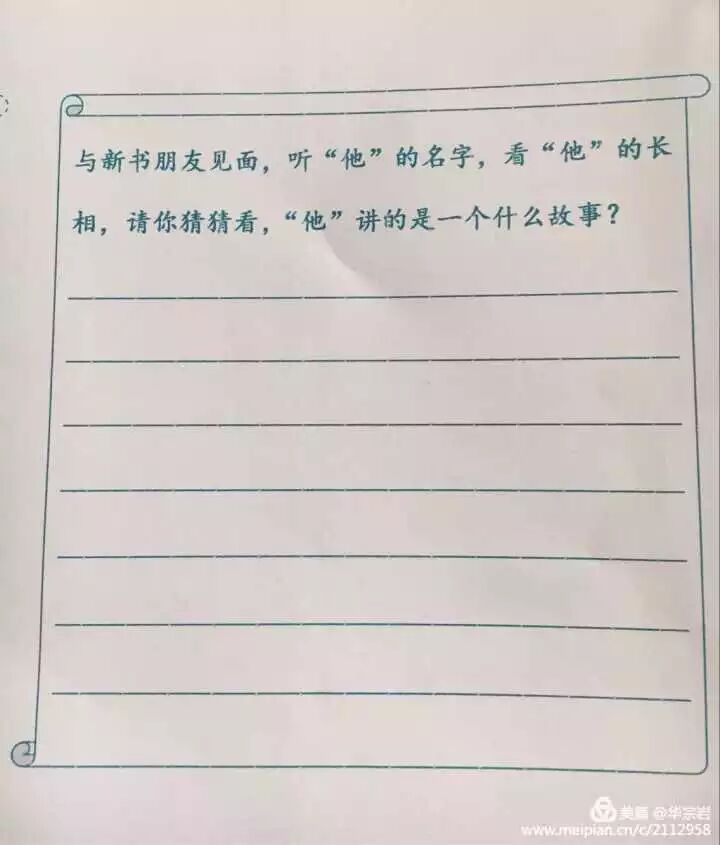 与新书朋友见面，听“他”的名字，看“他”的长
相，请你猜猜看，“他”讲的是一个什么故事？
美篇 @华宗岩
www.meipian.cn/c/2112958